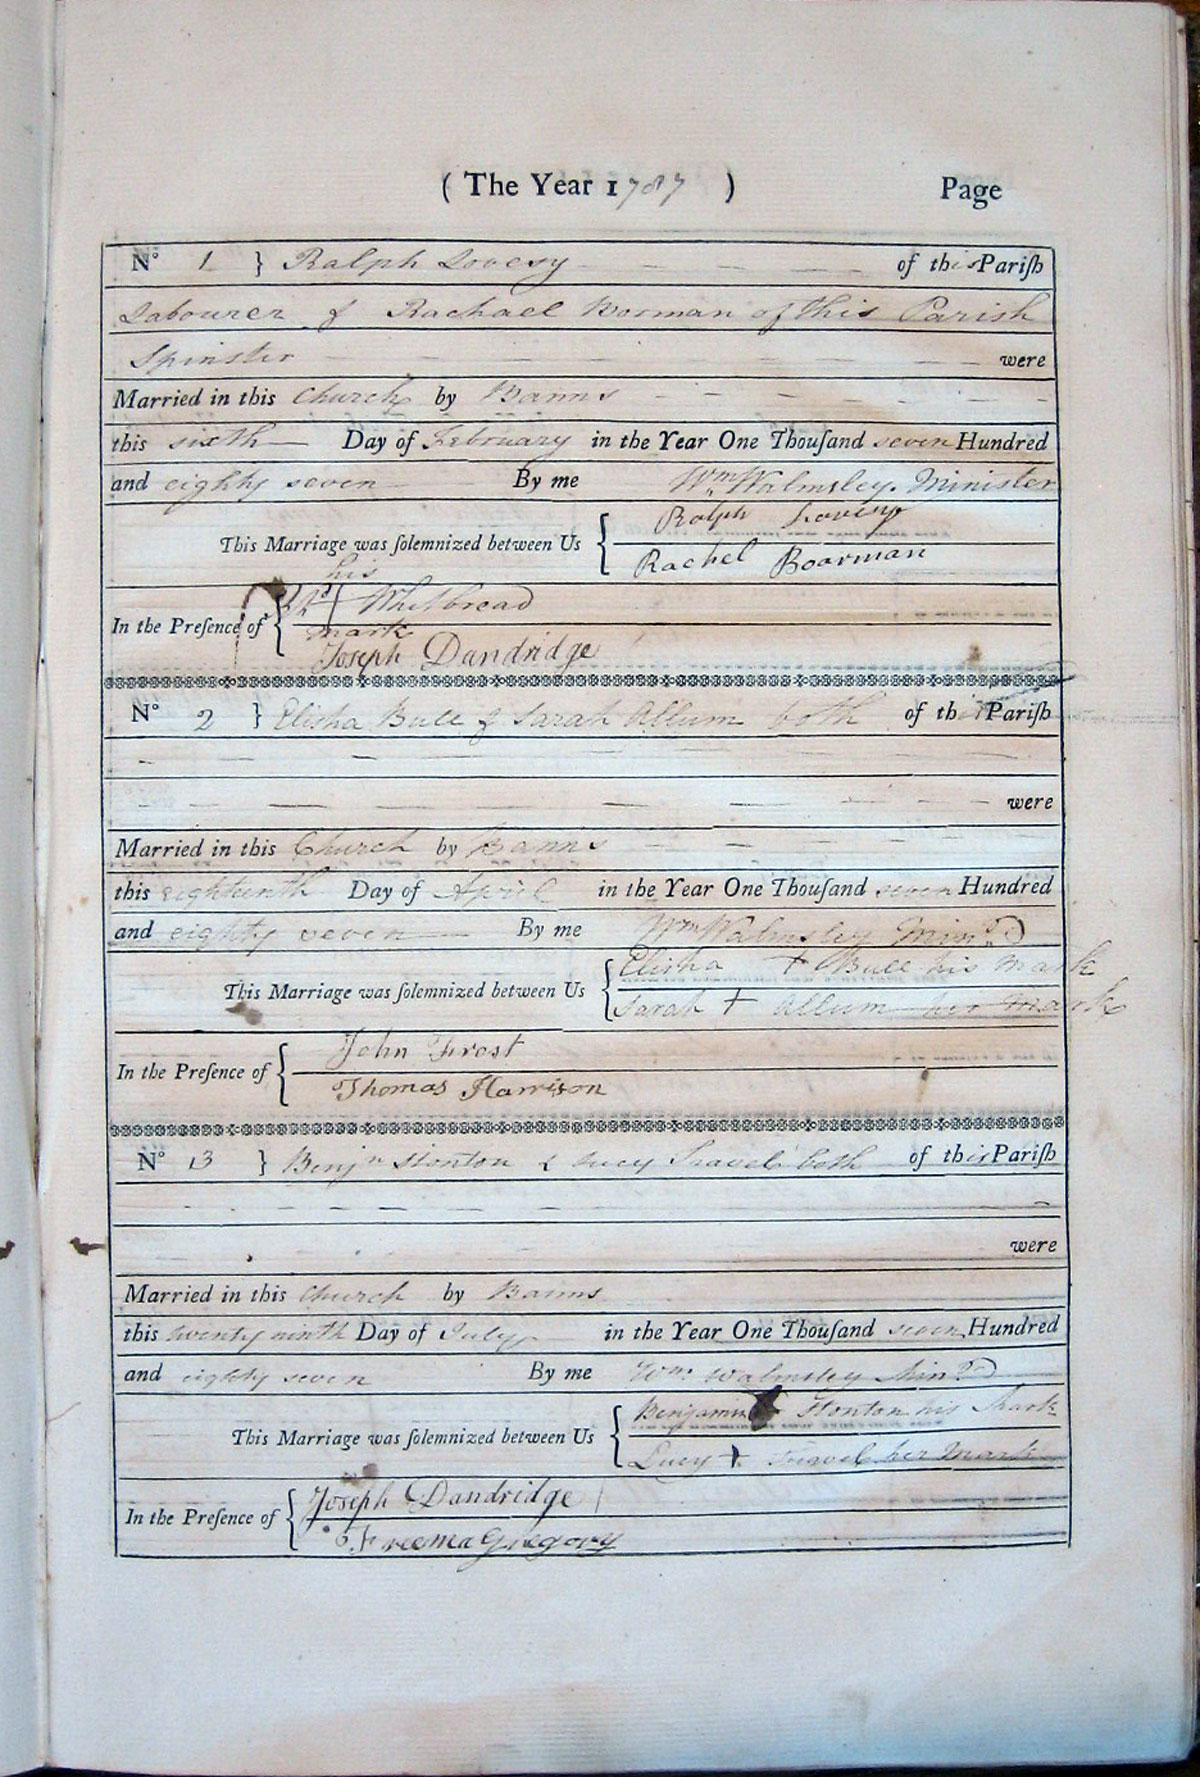 ( The Year 1787 ) Page
N° 1 } Ralph Lovesy of this Pariſh
Labourer & Rachael Borman of this Parish
Spinster were
Married in this Church by Banns
this sixth Day of February in the Year One Thouſand seven Hundred
and eighty seven By me Wm Walmsley. Minister
This Marriage was ſolemnized between Us { Ralph Lovesy
Rachel Boarman
his
In the Preſence of { + Whitbread
mark
Joseph Dandridge
N° 2 } Elisha Bull & Sarah Allum both of this Pariſh
were
Married in this Church by Banns
this eighteenth Day of April in the Year One Thouſand seven Hundred
and eighty seven By me Wm Walmsley Minr
This Marriage was ſolemnized between Us { Elisha + Bull his mark
Sarah + Allum her mark
In the Preſence of { John Frost
Thomas Harrison
N° 3 } Benjn Stonton & Lucy Travel both of this Pariſh
were
Married in this Church by Banns
this twenty ninth Day of July in the Year One Thouſand seven Hundred
and eighty seven By me Wm Walmsley Minr
This Marriage was ſolemnized between Us { Benjamin Stonton his Mark
Lucy + Travel her Mark
In the Preſence of { Joseph Dandridge
Freema Gregory